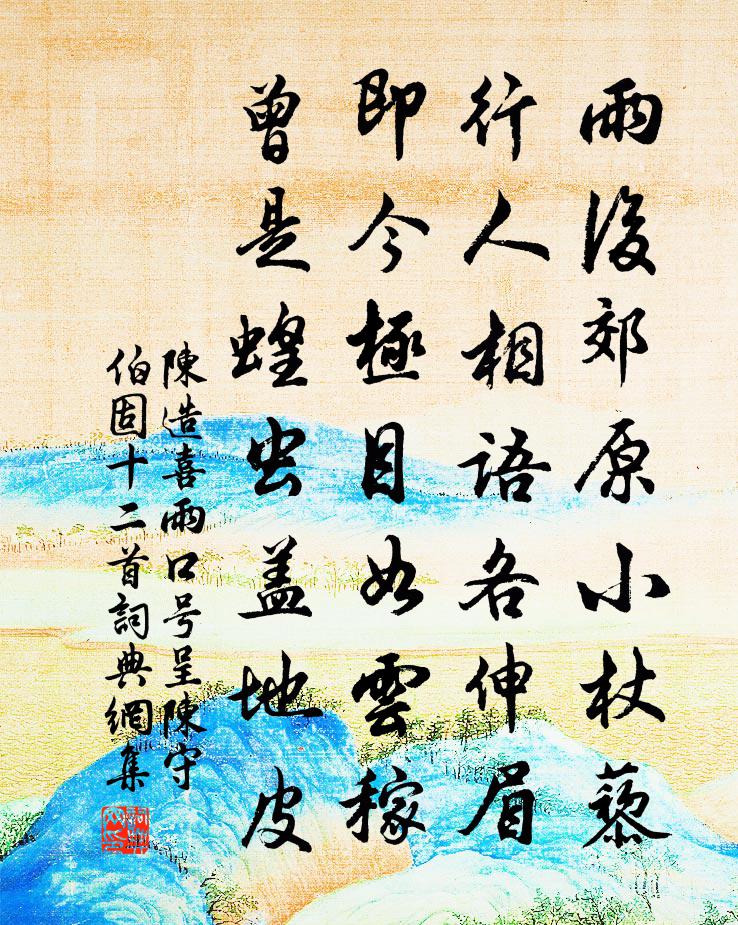 雨後郊原小杖藜
行人相語各伸眉
即今極目如雲稼
曾是蝗虫盖地皮
陳造喜雨口号呈陳守
伯固十二首詞典網集